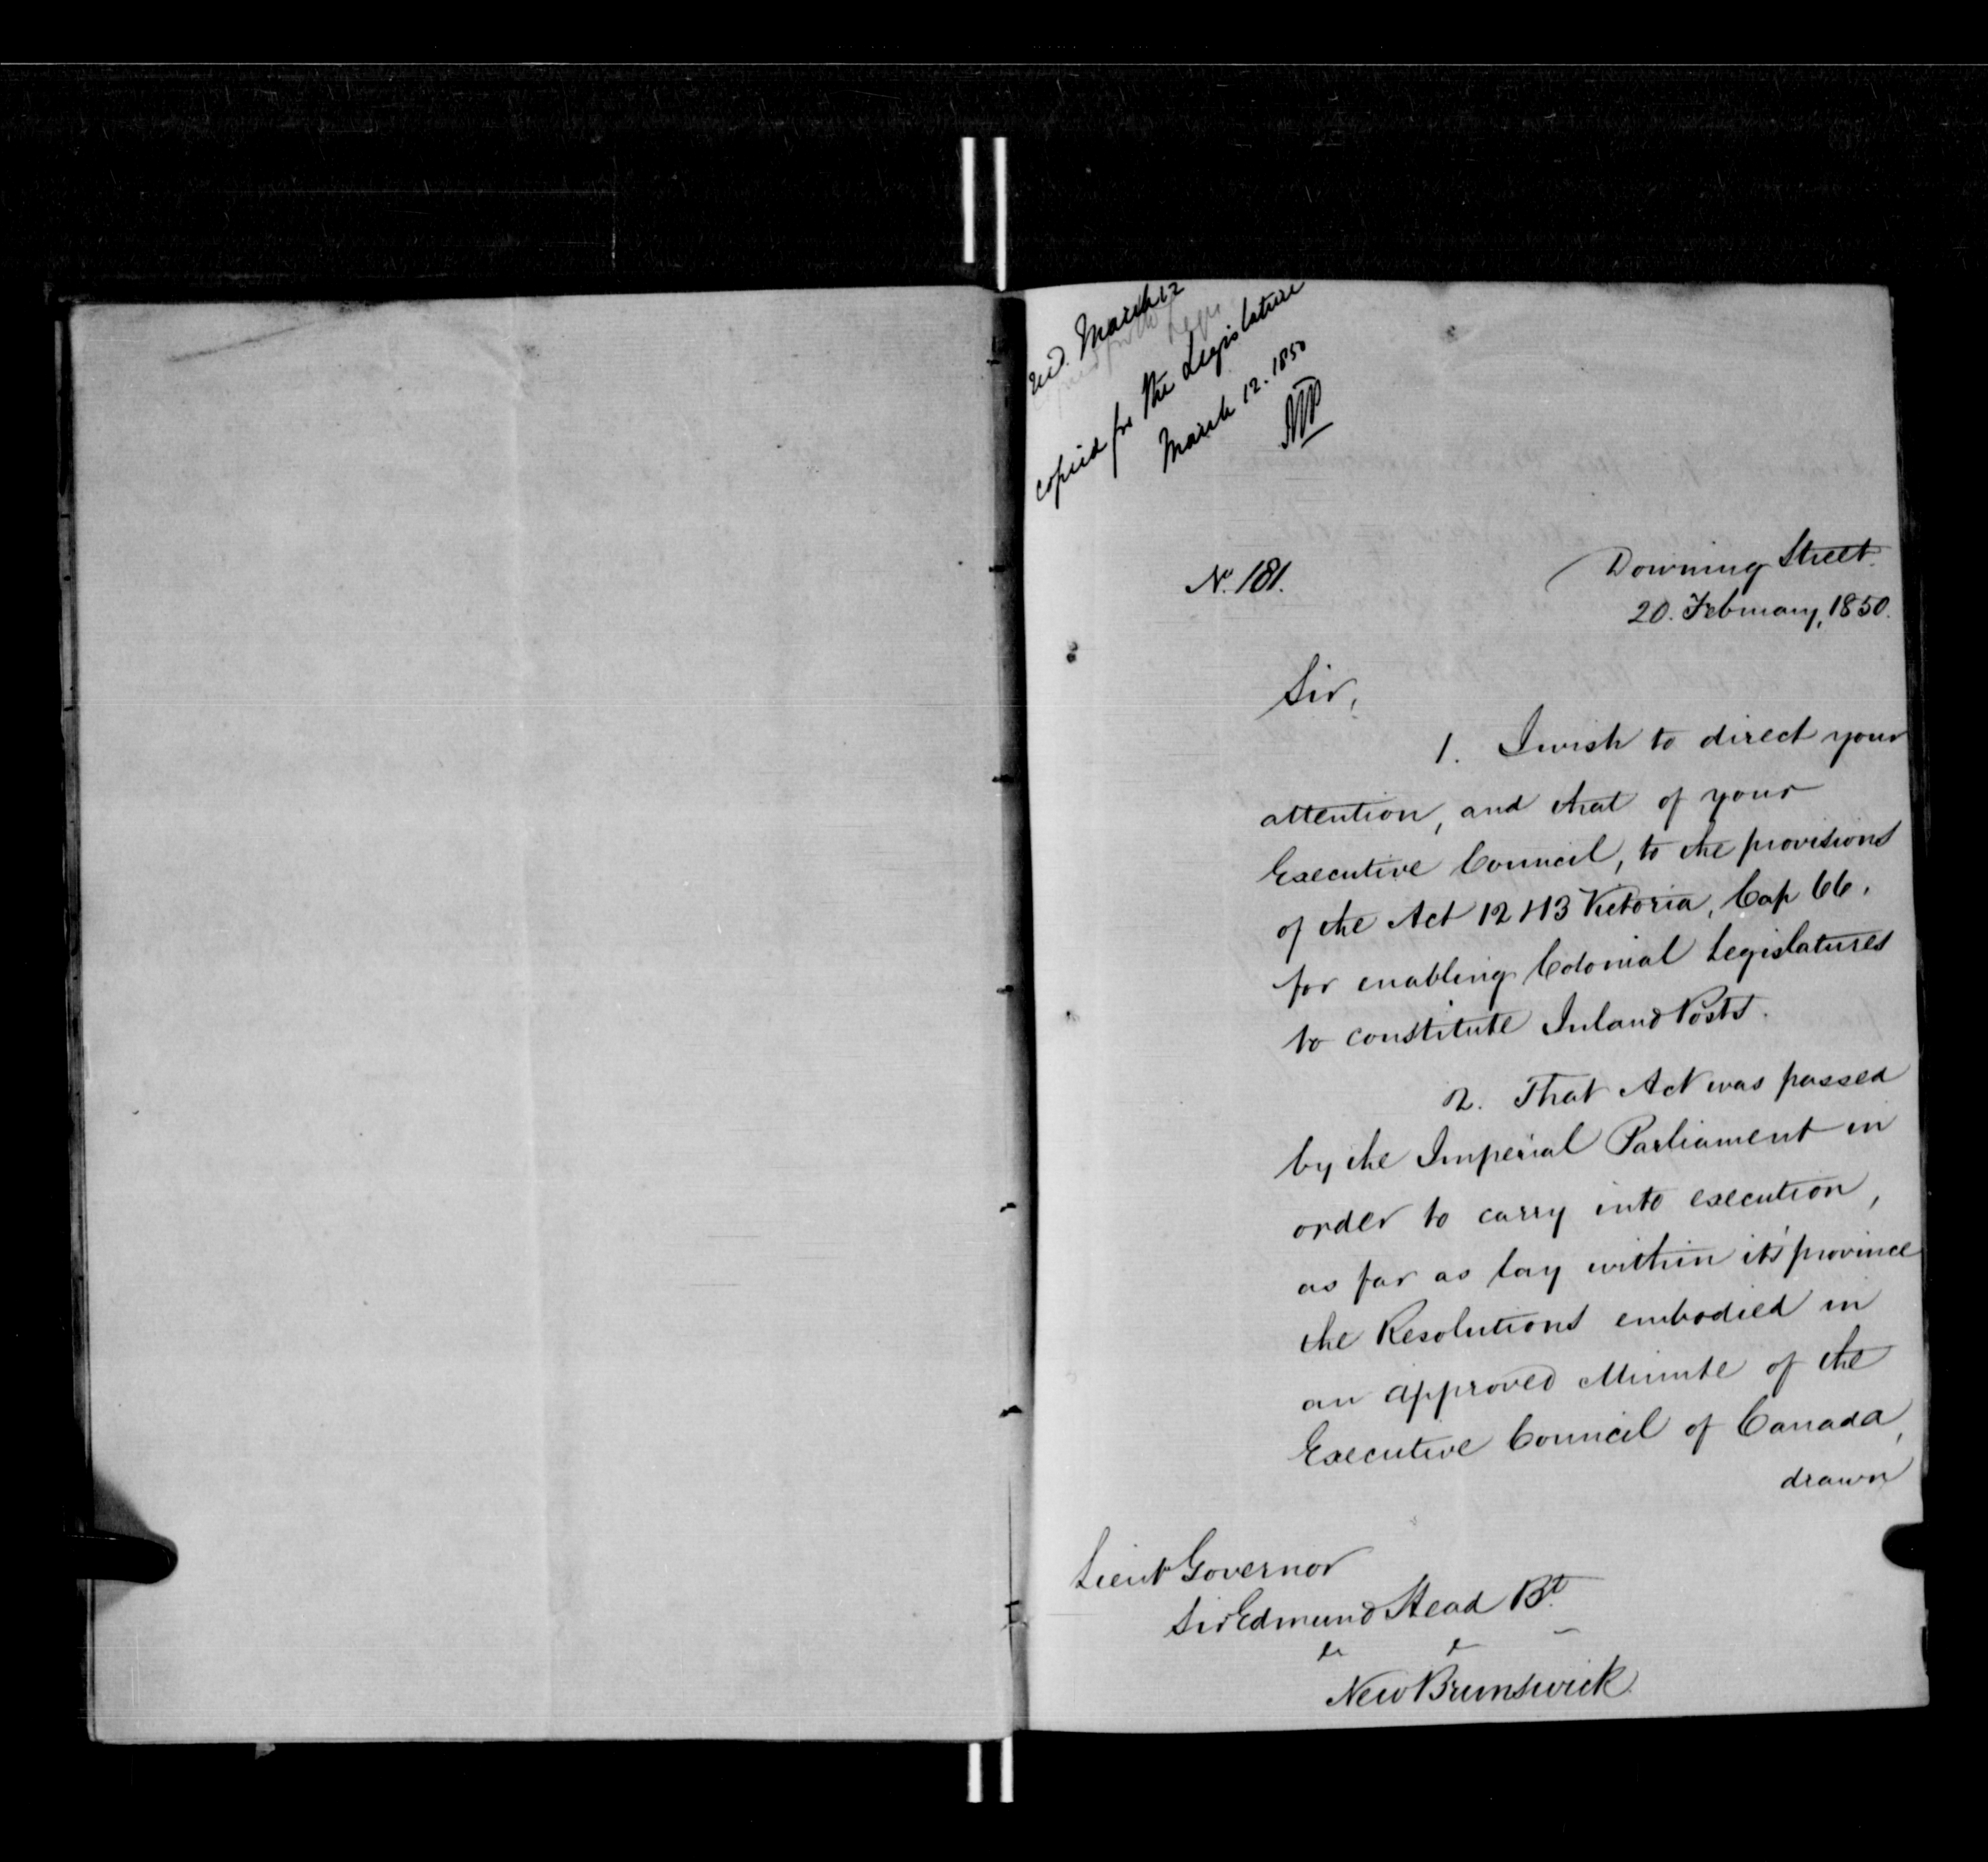 recd. March 12
copied for the Legislature
March 12. 1850
No. 181.
Downing Street.
20. February, 1850.
Sir,
1. I wish to direct your
attention, and that of your
Executive Council, to the provisions
of the Act 12 & 13 Victoria, Cap 66.
for enabling Colonial Legislatures
to constitute Inland Posts.
2. That Act was passed
by the Imperial Parliament in
order to carry into execution,
as far as lay within it's province
the Resolutions embodied in
an approved Minute of the
Executive Council of Canada,
drawn
Lieut Governor
Sir Edmund Head Bt.
&c &c
New Brunswick.